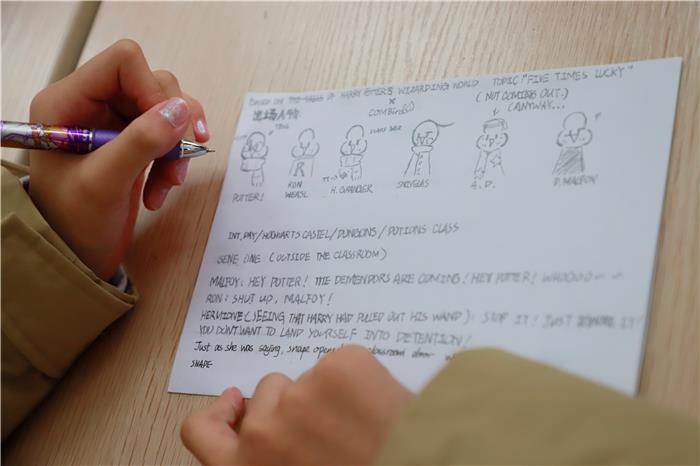 BASED ON OF HARRY POTTER'S WIZARDING WORLD TOPIC: "FIVE TIMES LUCKY"
×
(NOT COMING OUT.)
(ANYWAY...
POTTER!
RON
WEASL
R
H. GRANDLER
A.D.
D.MALFOY
INT, DAY/HOGWARTS CASTEL/DUNGONS/POTIONS CLASS
SENE ONE (OUTSIDE THE CLASSROOM)
MALFOY: HEY POTTER! THE DEMENDORS ARE COMING! HEY POTTER! WHOOOOO~ ~
RON: SHUT UP, MALFOY!
HERMIONE (SEEING THAT HARRY HAD PULLED OUT HIS WAND): STOP IT! JUST IT!
YOU DON'T WANT TO LAND YOURSELF INTO DETENTION!
Just as she was saying, snape door
SNAPE